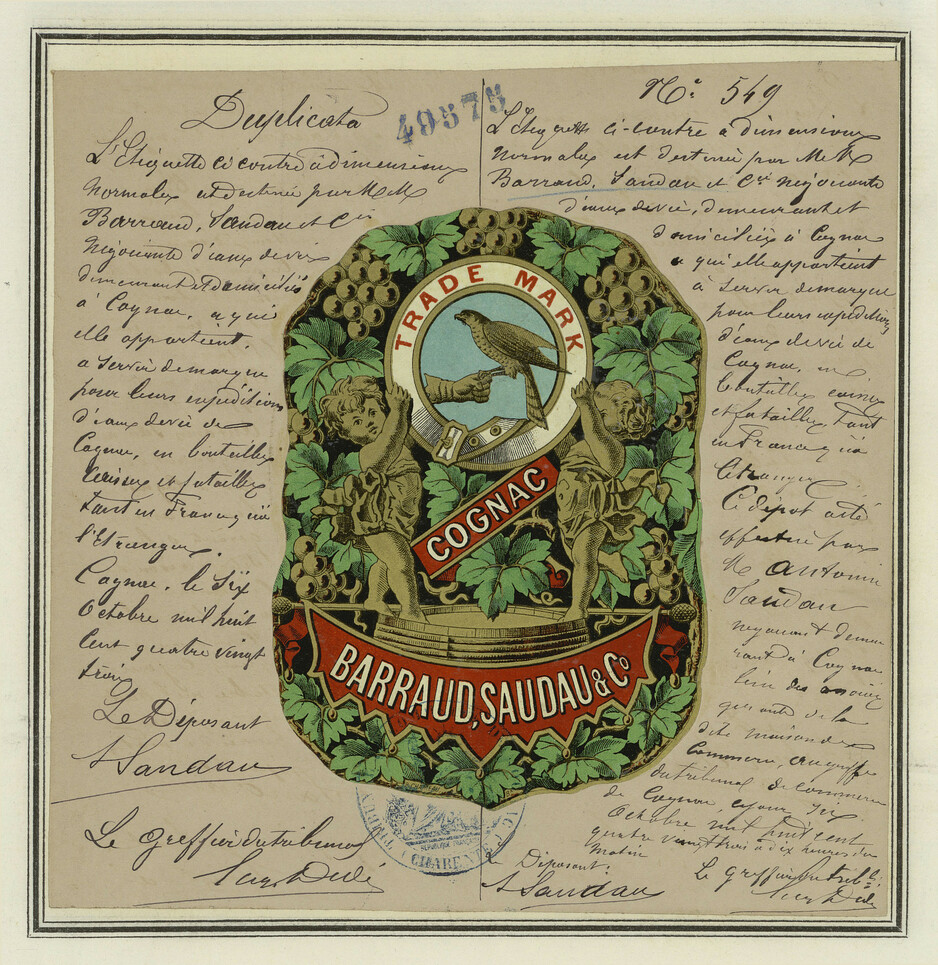 Duplicata
49575
L'Etiquette ci contre à dimensions
normales est destinée par M M
Barraud, Saudau et Cie
Négociants d'eaux de vie
demeurant et domiciliés
à Cognac, a qui
elle appartient,
a servir de marque
pour leurs expéditions
d'eaux de vie de
Cognac, en bouteilles
caisses et futailles
tant en France qu'à
l'Etranger.
Cognac, le Six
Octobre mil huit
cent quatre vingt
trois
Le Déposant
A Saudau
Le greffier du tribunal
No: 549
L'Etiquette ci-contre à dimensions
normales est destinée par M.M.
Barraud, Saudau et Cie négociants
d'eaux de vie, demeurant et
domiciliés à Cognac
a qui elle appartient
à Servir de marque
pour leurs expéditions
d'eaux de vie de
Cognac, en
bouteilles caisses
et futailles tant
en France qu'à
l'étranger
Ce dépôt a été
effectué par
M. Antonin
Saudau
négociant demeu
rant à Cognac
l'un des associés
gérants de la
dite maison de
Commerce, au greffe
du tribunal de commerce
de Cognac, ce jour, six
Octobre mil huit cent
quatre vingt trois à dix heures du
Matin
Le Déposant.
A Saudau
Le greffier du trib
TRADE MARK
COGNAC
BARRAUD, SAUDAU & Co
CHARENTE